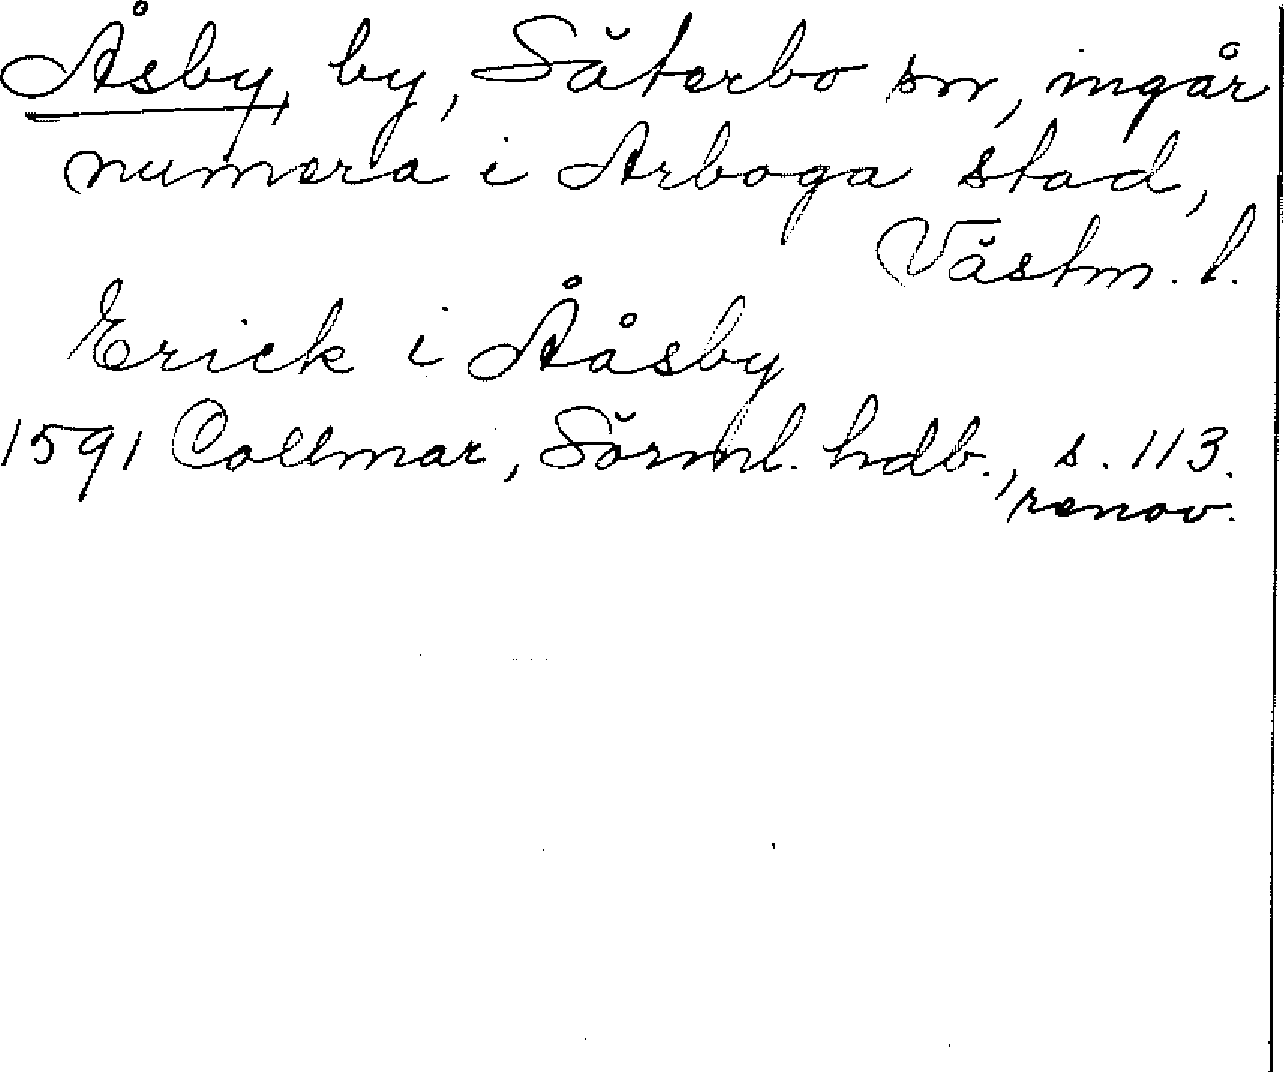 Åsby, by, Säterbo sn, ingår
numera i Arboga stad,
Västm. l.
Erick i Ååsby
1591 Collmar, Sörml. hdb., s. 113.
renov.